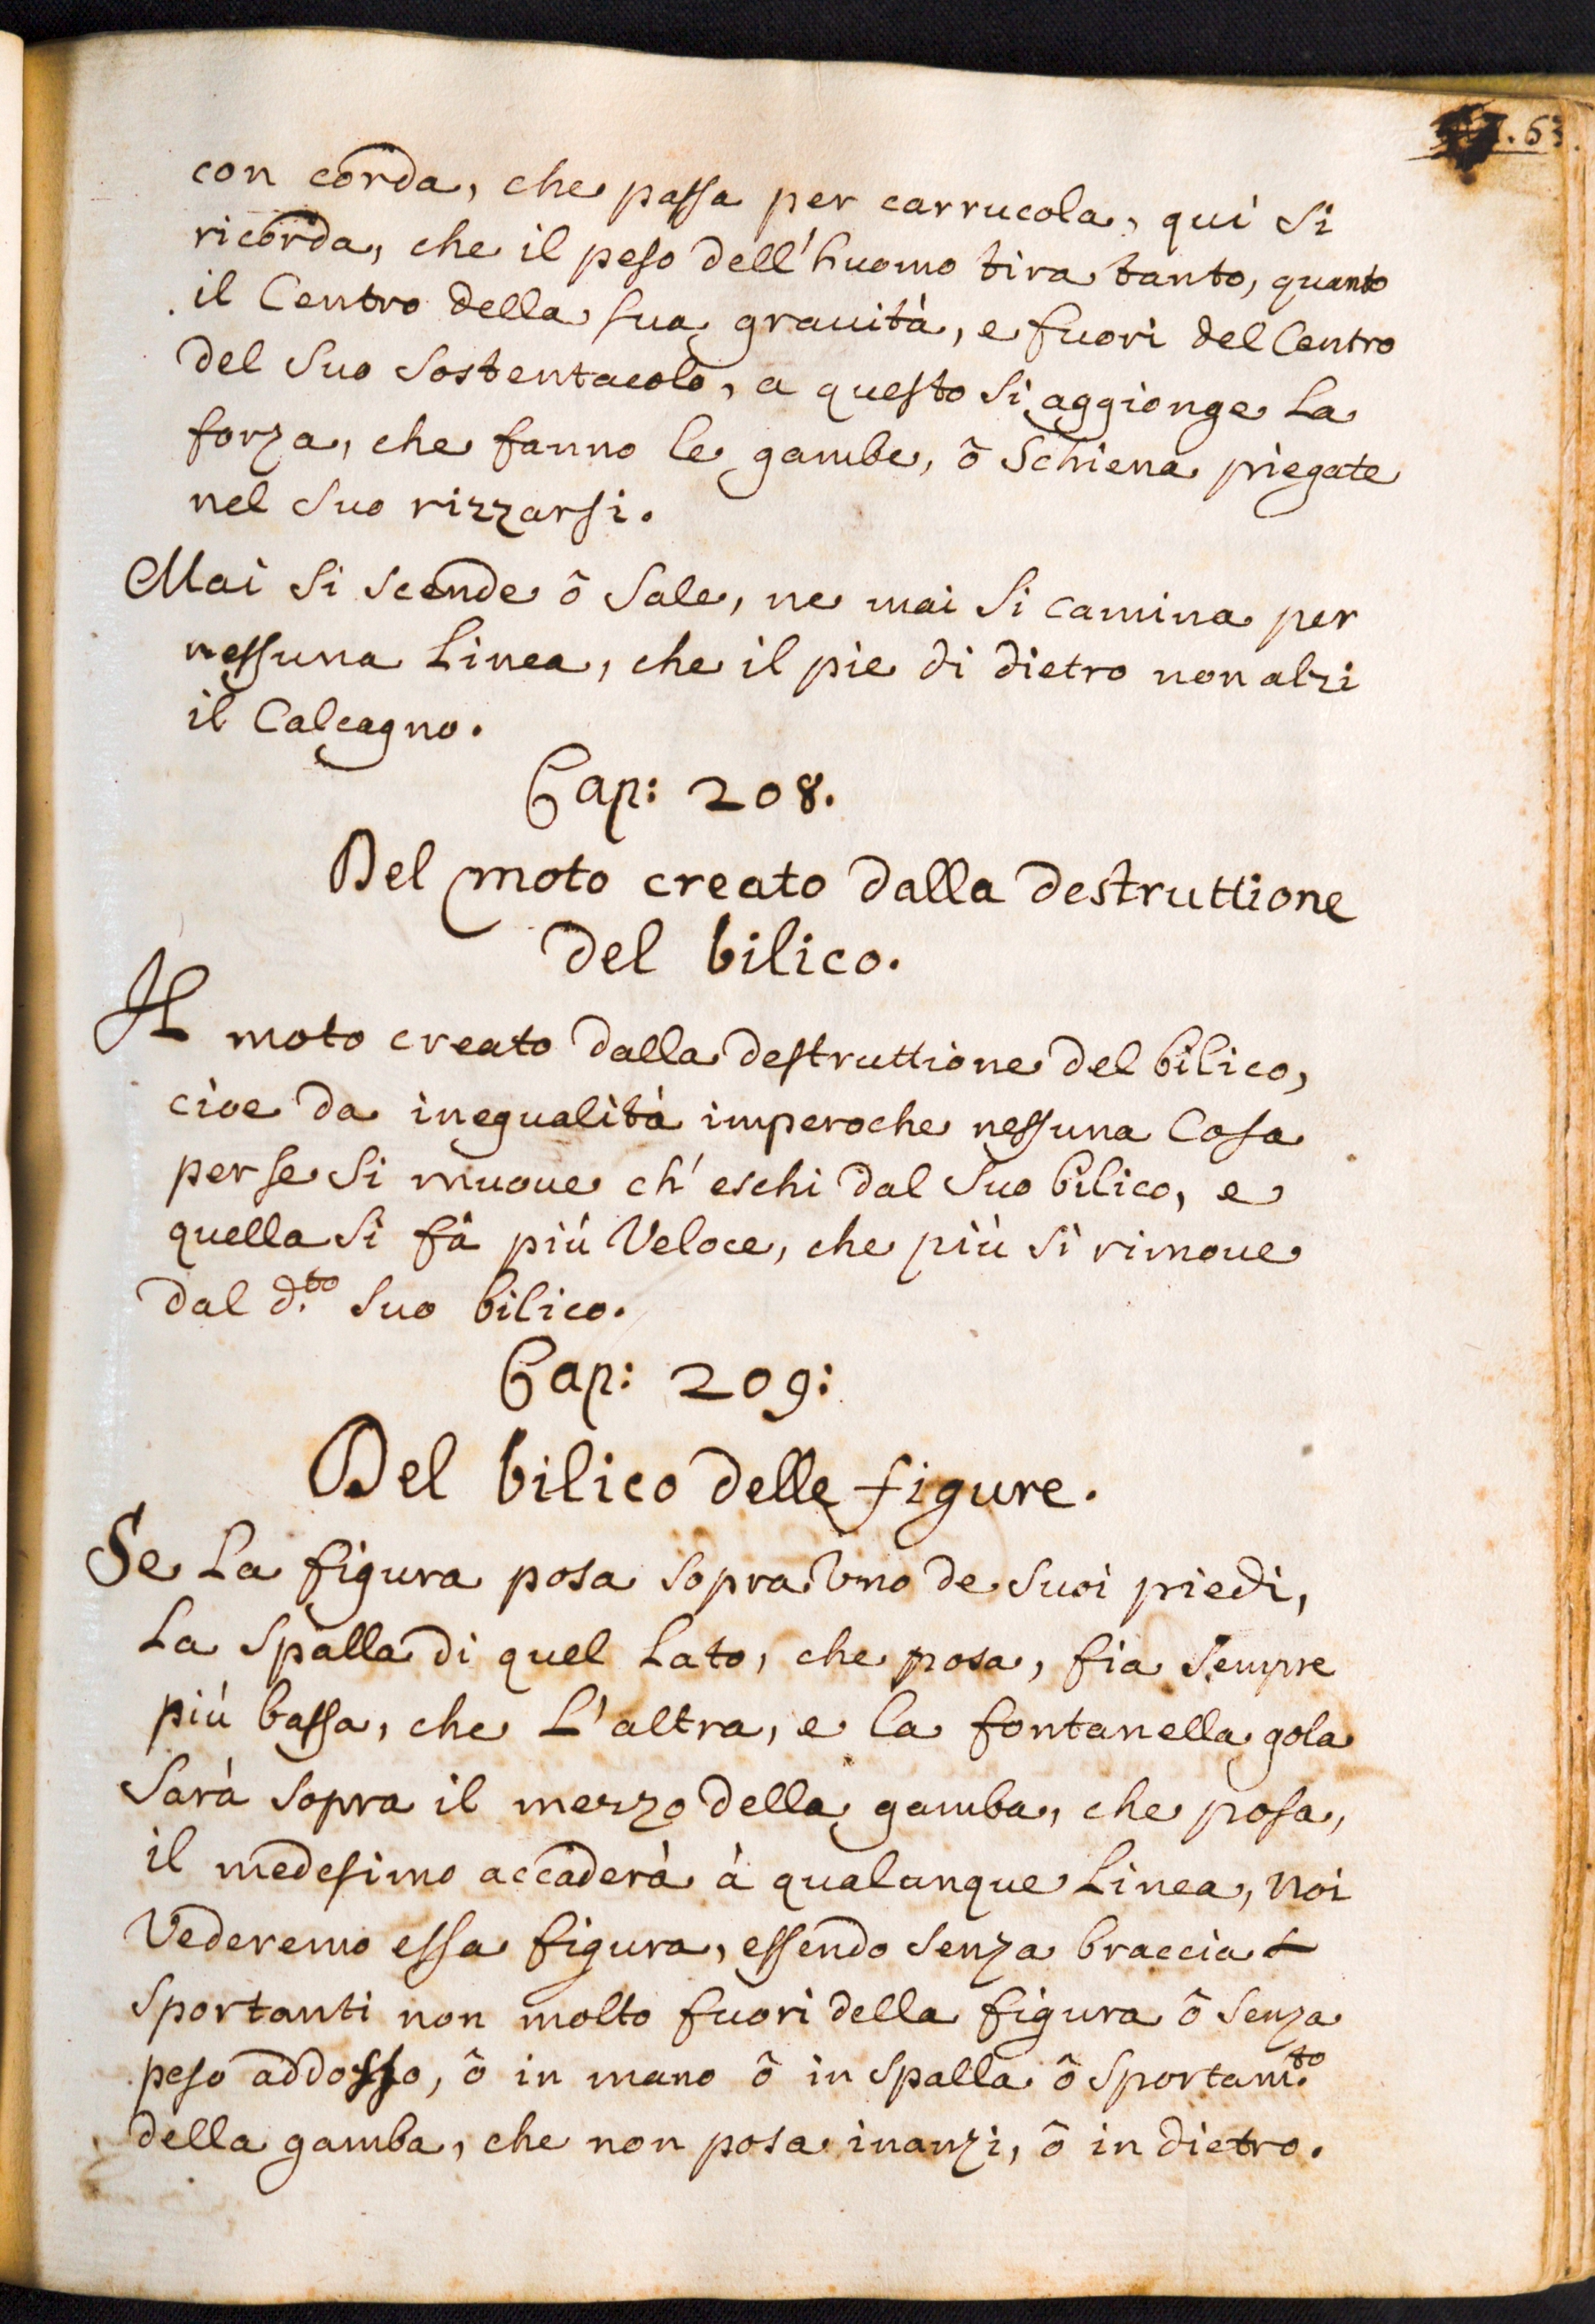 63.
con corda, che passa per carrucola, qui si
ricorda, che il peso dell'huomo tira tanto, quanto
il Centro della sua grauità, e fuori del Centro
del suo sostentacolo, a questo si aggionge la
forza, che fanno le gambe, ô schiena piegate
nel suo rizzarsi.
Mai si scende ô sale, ne mai si camina per
nessuna linea, che il pie di dietro non alzi
il Calcagno.
Cap: 208.
Del moto creato dalla destruttione
del bilico.
Il moto creato dalla destruttione del bilico,
cioe da inegualità imperoche nessuna Cosa
per se si muoue ch'eschi dal suo bilico, e
quella si fà più Veloce, che più si rimoue
dal d.to suo bilico.
Cap: 209:
Del bilico delle figure.
Se la figura posa sopra Vno de suoi piedi,
la spalla di quel lato, che posa, fia sempre
più bassa, che l'altra, e la fontanella gola
sarà sopra il mezzo della gamba, che posa,
il medesimo accaderà à qualunque linea, noi
Vederemo essa figura, essendo senza braccia
sportanti non molto fuori della figura ô senza
peso addosso, ô in mano ô in spalla ô sportam.to
della gamba, che non posa inanzi, ô in dietro.